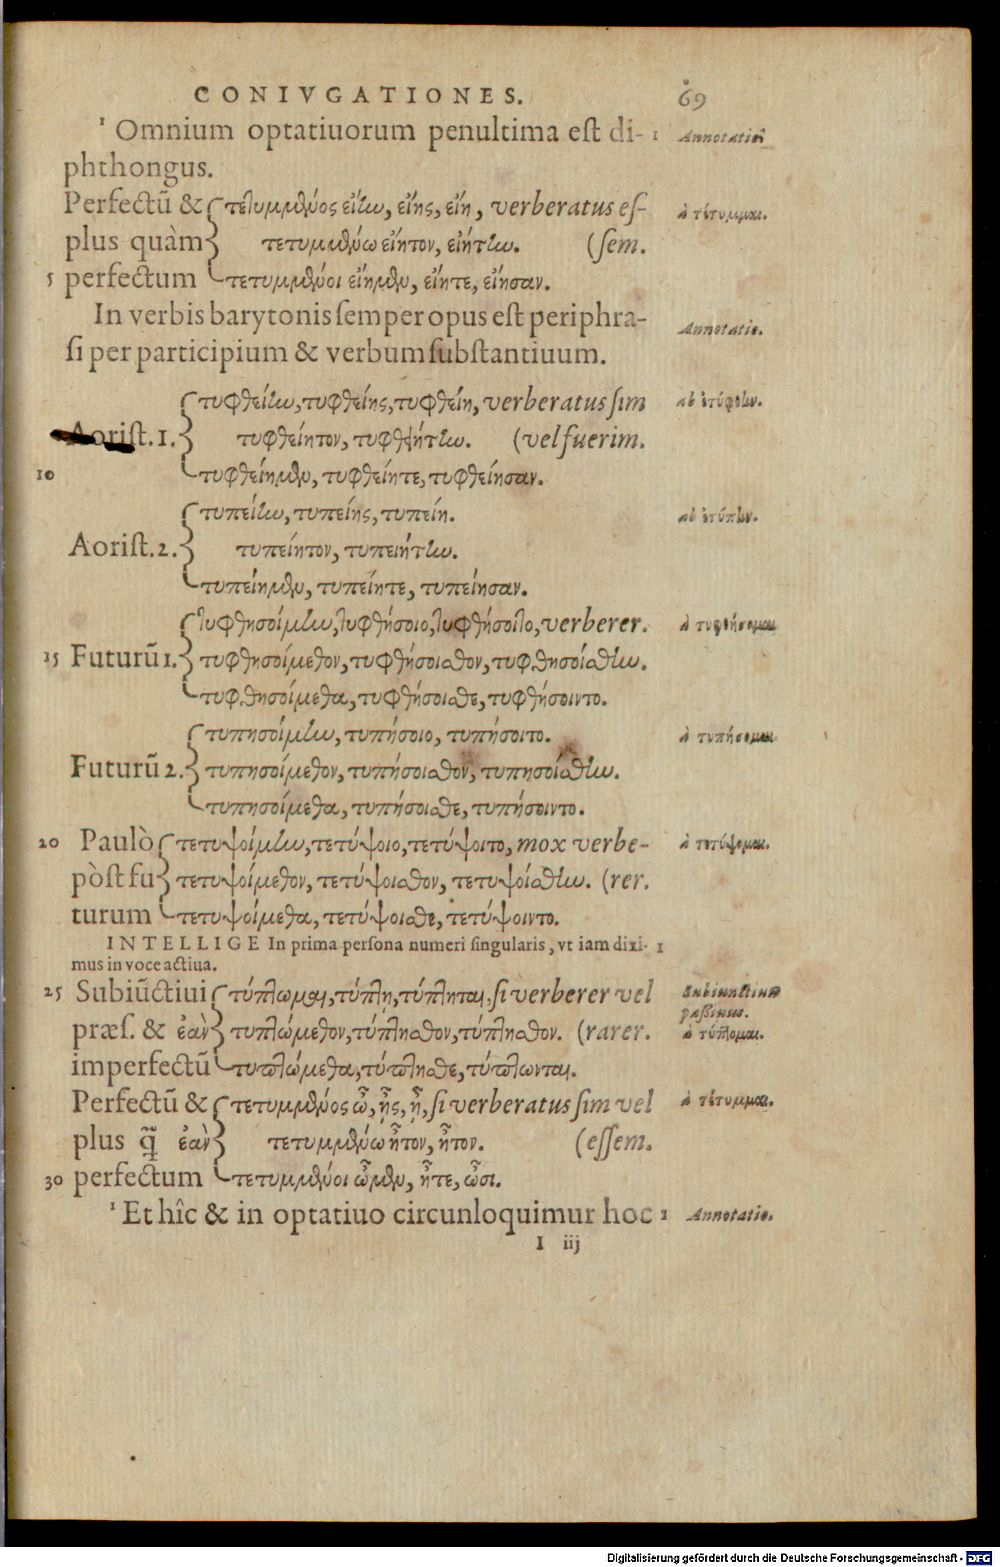 CONIVGATIONES. 69
¹ Omnium optatiuorum penultima est di- 1 Annotatio
phthongus.
Perfectũ & τετυμμένος εἴην, εἴης, εἴη, verberatus es- à τέτυμμαι.
plus quàm τετυμμένω εἴητον, εἰήτην. (sem.
5 perfectum τετυμμένοι εἴημεν, εἴητε, εἴησαν.
In verbis barytonis semper opus est periphra- Annotatio.
si per participium & verbum substantiuum.
τυφθείην, τυφθείης, τυφθείη, verberatus sim ab ἐτύφθην.
Aorist. 1. τυφθείητον, τυφθειήτην. (vel fuerim.
10 τυφθείημεν, τυφθείητε, τυφθείησαν.
τυπείην, τυπείης, τυπείη. ab ἐτύπην.
Aorist. 2. τυπείητον, τυπειήτην.
τυπείημεν, τυπείητε, τυπείησαν.
τυφθησοίμην, τυφθήσοιο, τυφθήσοιτο, verberer. à τυφθήσομαι
15 Futurũ 1. τυφθησοίμεθον, τυφθήσοισθον, τυφθησοίσθην.
τυφθησοίμεθα, τυφθήσοισθε, τυφθήσοιντο.
τυπησοίμην, τυπήσοιο, τυπήσοιτο. à τυπήσομαι
Futurũ 2. τυπησοίμεθον, τυπήσοισθον, τυπησοίσθην.
τυπησοίμεθα, τυπήσοισθε, τυπήσοιντο.
20 Paulò τετυψοίμην, τετύψοιο, τετύψοιτο, mox verbe- à τετύψομαι.
pòst fu τετυψοίμεθον, τετύψοισθον, τετυψοίσθην. (rer.
turum τετυψοίμεθα, τετύψοισθε, τετύψοιντο.
INTELLIGE In prima persona numeri singularis, vt iam dixi- 1
mus in voce actiua.
25 Subiũctiui τύπτωμαι, τύπτῃ, τύπτηται, si verberer vel Subiunctiuus
passiuus.
præs. & ἐὰν τυπτώμεθον, τύπτησθον, τύπτησθον. (rarer. à τύπτομαι.
imperfectũ τυπτώμεθα, τύπτησθε, τύπτωνται.
Perfectũ & τετυμμένος ὦ, ᾖς, ᾖ, si verberatus sim vel à τέτυμμαι.
plus q̃ ἐὰν τετυμμένω ἦτον, ἦτον. (essem.
30 perfectum τετυμμένοι ὦμεν, ἦτε, ὦσι.
¹ Et hîc & in optatiuo circunloquimur hoc 1 Annotatio.
I iij
Digitalisierung gefördert durch die Deutsche Forschungsgemeinschaft - DFG